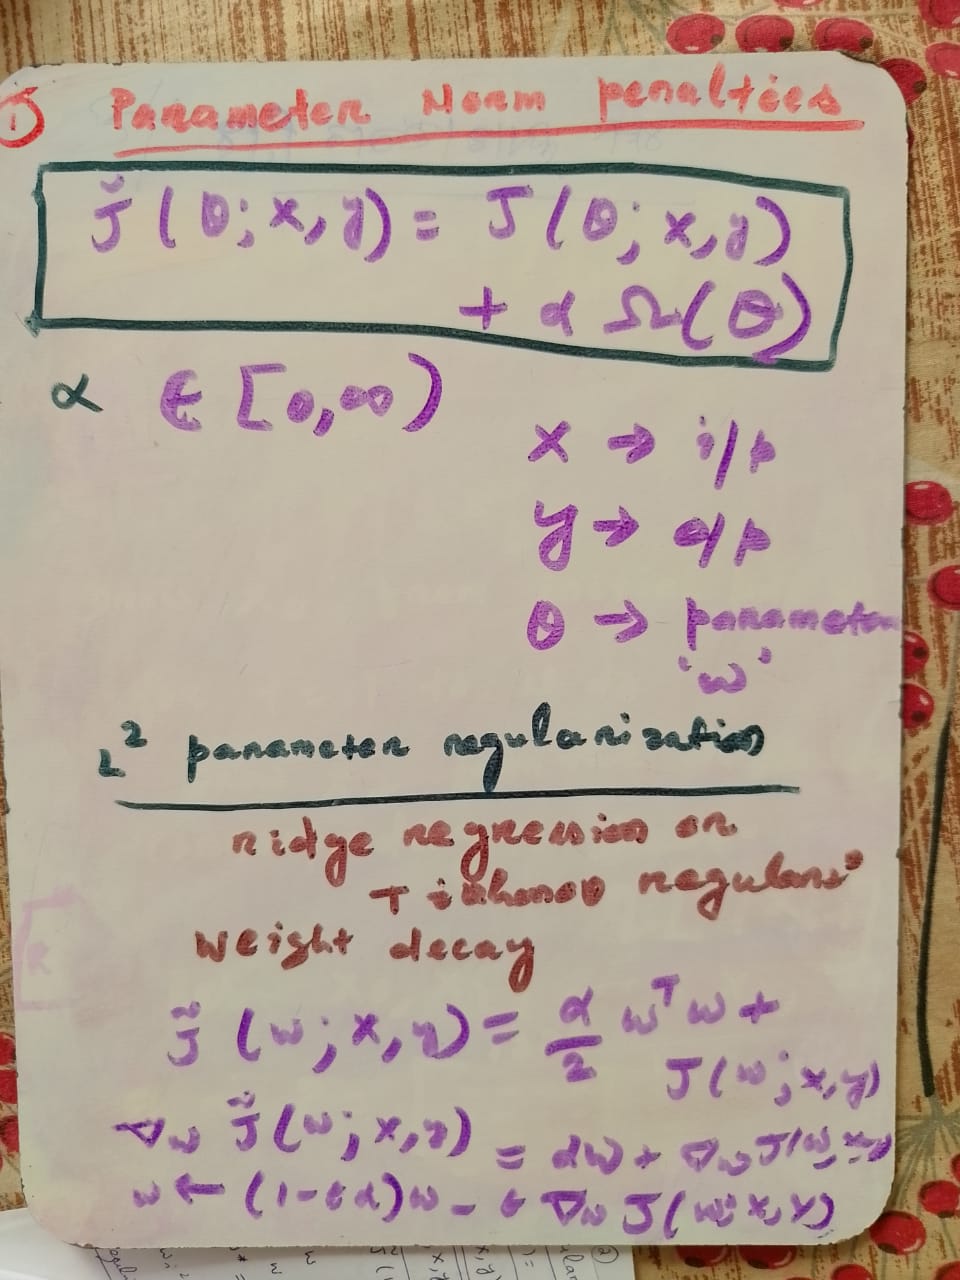 ① Parameter Norm penalties
J̃(θ; x, y) = J(θ; x, y)
+ α Ω(θ)
α ∈ [0, ∞)
x → i/p
y → o/p
θ → parameter
'w'
L² parameter regularization
ridge regression or
Tikhonov regulariⁿ
Weight decay
J̃ (w; x, y) = α/2 wᵀw +
J(w; x, y)
∇w J̃(w; x, y) = αw + ∇w J(w; x, y)
w ← (1-εα)w - ε ∇w J(w; x, y)